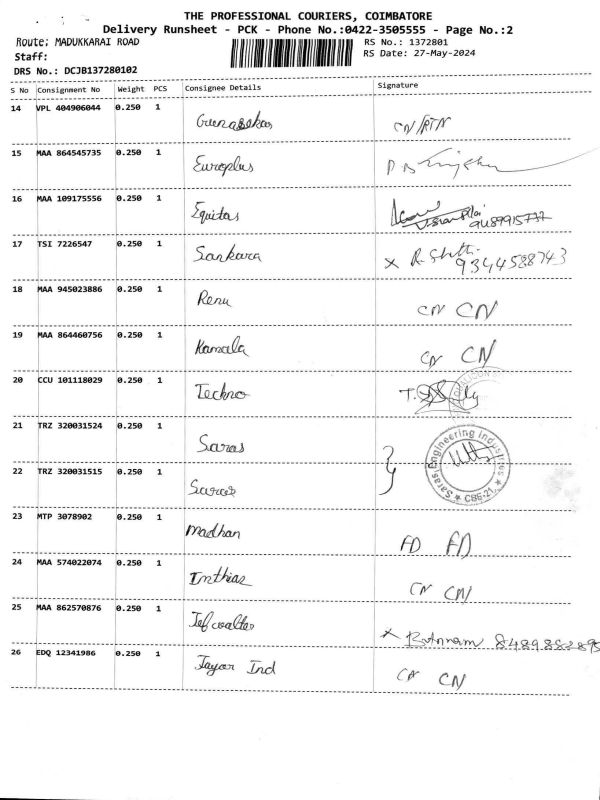 THE PROFESSIONAL COURIERS, COIMBATORE
Delivery Runsheet - PCK - Phone No.:0422-3505555 - Page No.:2
Route: MADUKKARAI ROAD RS No.: 1372801
Staff: RS Date: 27-May-2024
DRS No.: DCJB137280102
S No Consignment No Weight PCS Consignee Details Signature
14 VPL 404906044 0.250 1 Gunasekar CN/RTN
15 MAA 864545735 0.250 1 Europlus
16 MAA 109175556 0.250 1 Equitas
17 TSI 7226547 0.250 1 Sankara x R. 9344588743
18 MAA 945023886 0.250 1 Renu CN CN
19 MAA 864460756 0.250 1 Kamala CN CN
20 CCU 101118029 0.250 1 Techno
21 TRZ 320031524 0.250 1 Saras
Saras Engineering Industries
* CBE-21 *
22 TRZ 320031515 0.250 1 Saras
23 MTP 3078902 0.250 1 Madhan FD FD
24 MAA 574022074 0.250 1 Imthias CN CN
25 MAA 862570876 0.250 1 Jef coaltes x Rutnnam
26 EDQ 12341986 0.250 1 Jayar Ind CN CN